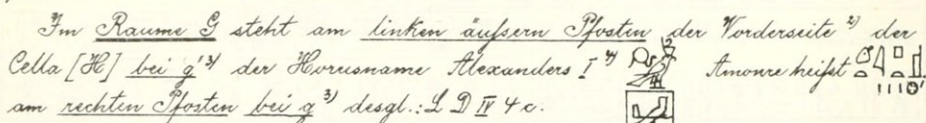 Im Raume G steht am linken äußern Pfosten der Vorderseite ²⁾ der
Cella [H] bei g ³⁾ der Horusname Alexanders I ⁴⁾ Amonre heißt
am rechten Pfosten bei g ³⁾ desgl.: L D IV 4 c.